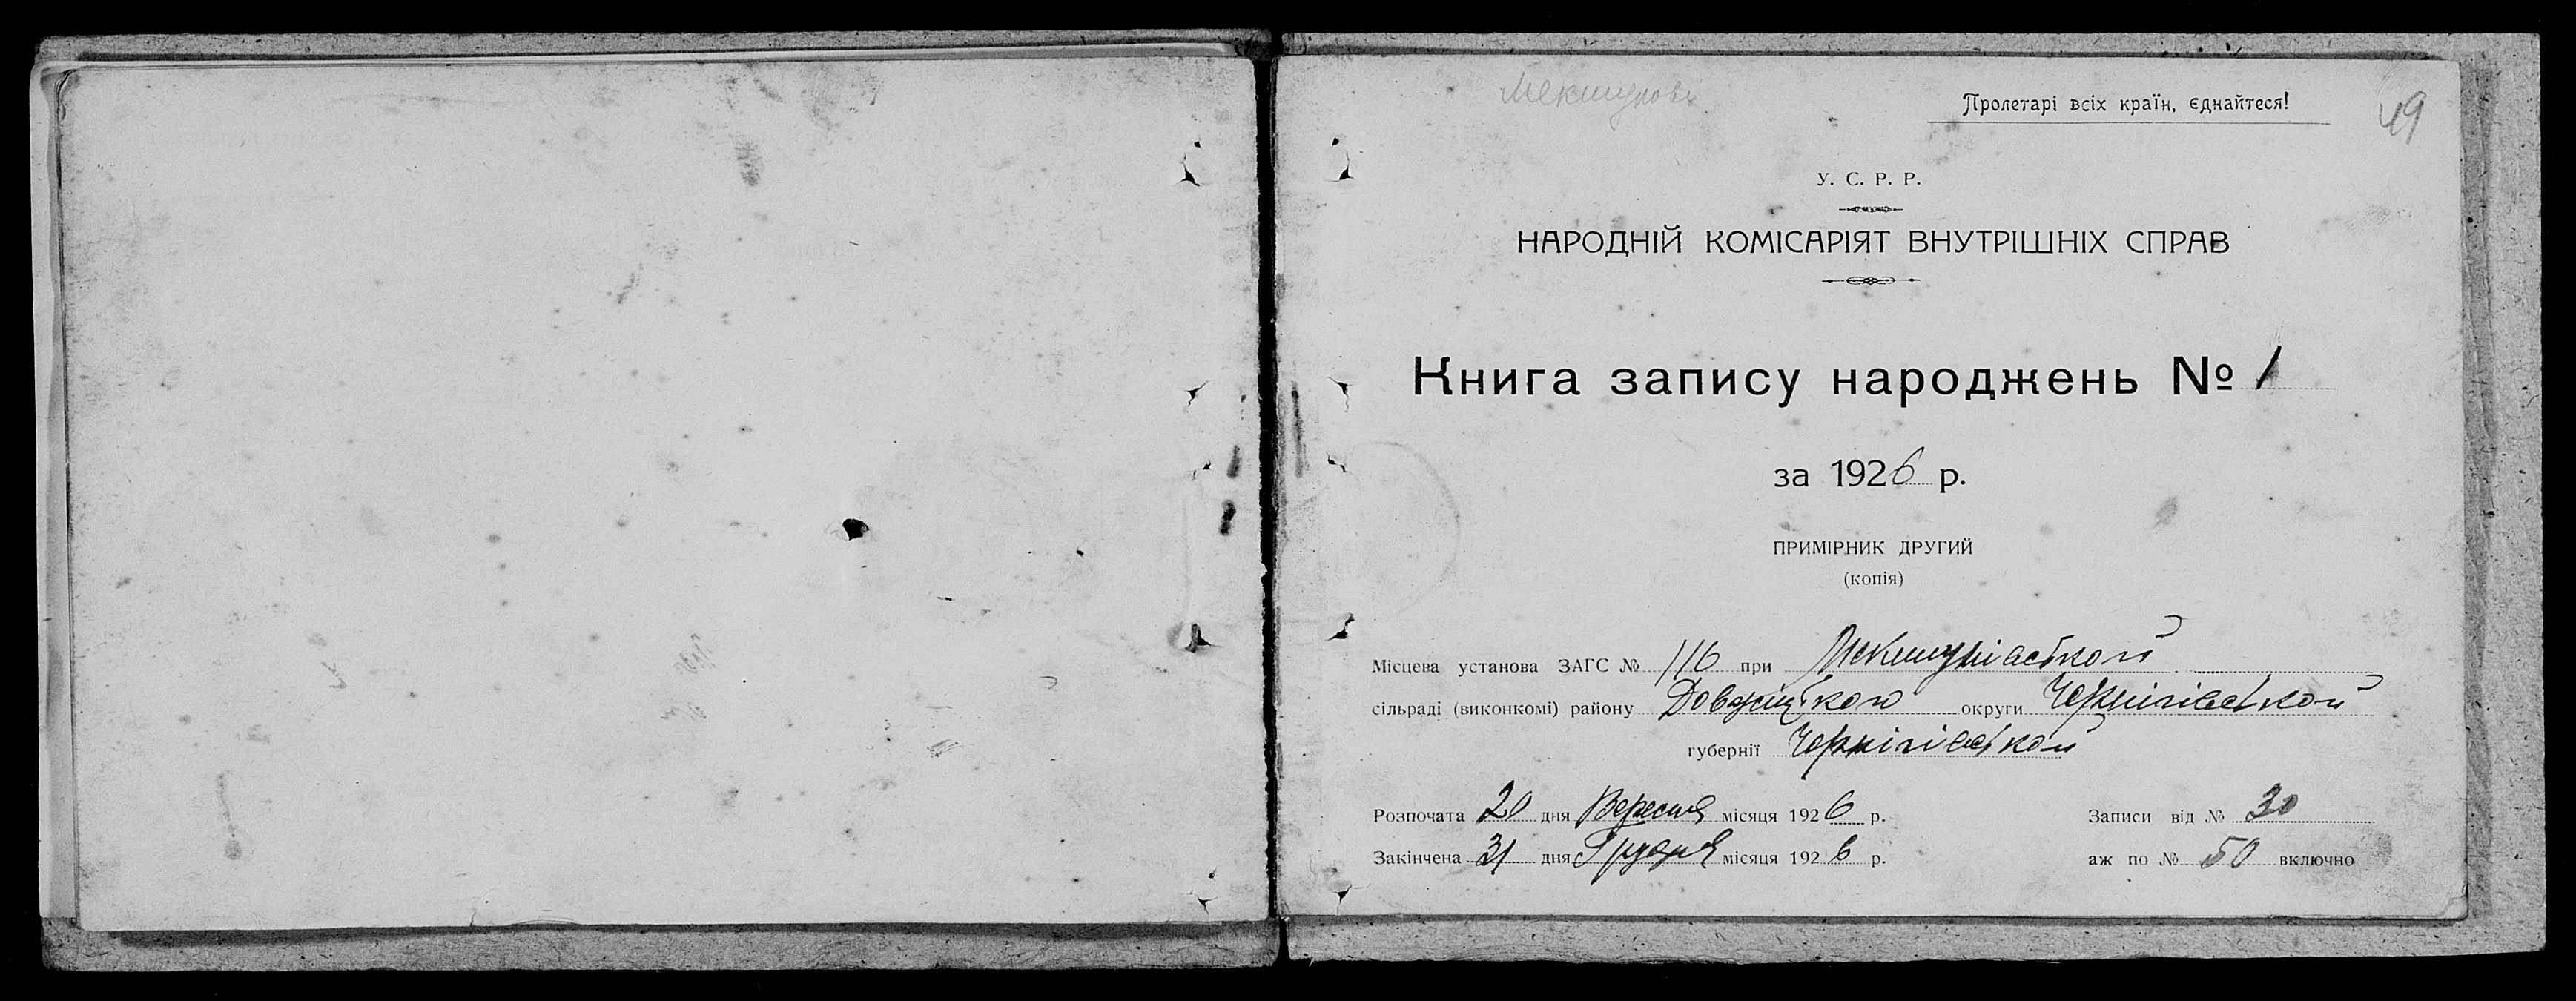 Мекшуновк
Пролетарі всіх країн, єднайтеся!
49
У. С. Р. Р.
НАРОДНІЙ КОМІСАРІЯТ ВНУТРІШНІХ СПРАВ
Книга запису народжень № 1
за 1926 р.
ПРИМІРНИК ДРУГИЙ
(копія)
Місцева установа ЗАГС № 116 при Мекшунівській
сільраді (виконкомі) району Довжицького округи Чернігівської
губернії Чернігівської
Розпочата 20 дня Вересня місяця 1926 р. Записи від № 30
Закінчена 31 дня Грудня місяця 1926 р. аж по № 50 включно